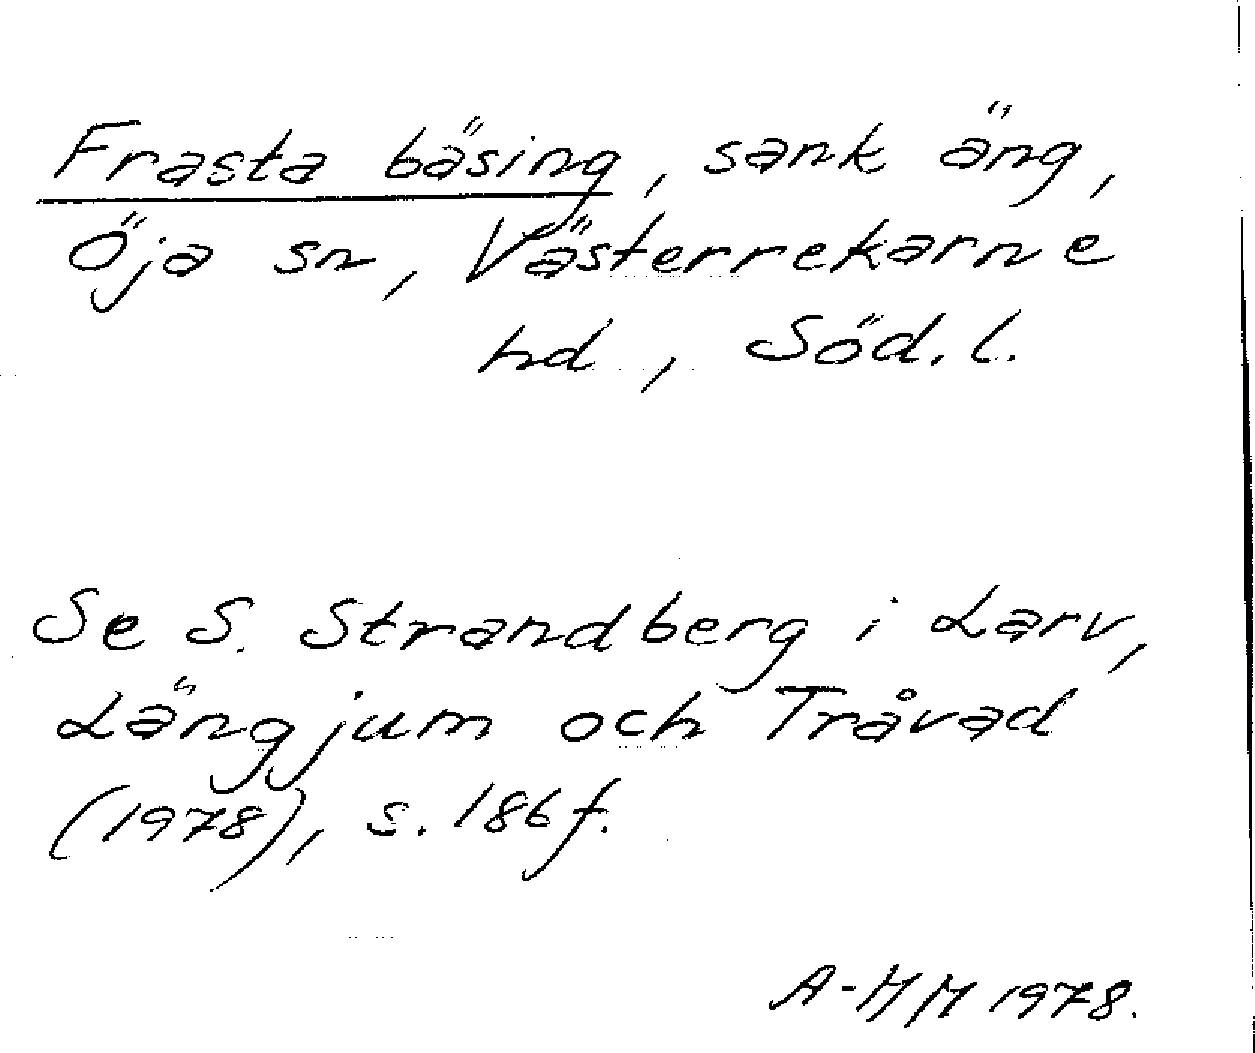 Frasta bäsing, sank äng,
Öja sn, Västerrekarne
hd, Söd. l.
Se S. Strandberg i Larv,
Längjum och Tråvad
(1978), s. 186 f.
A-MM 1978.